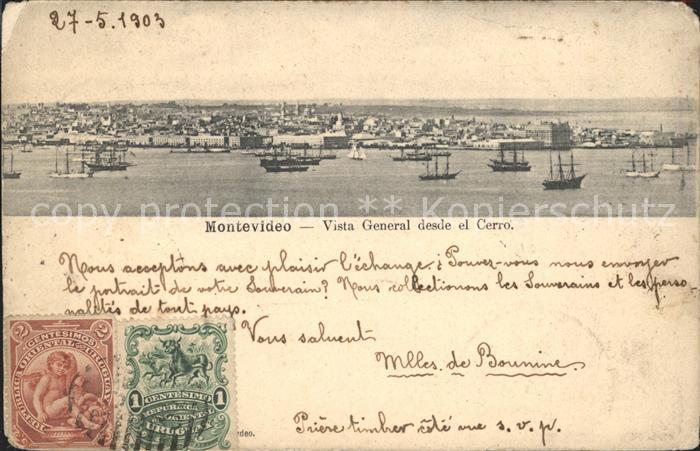 27-5.1903
copy protection ** Kopierschutz
Montevideo — Vista General desde el Cerro.
Nous acceptons avec plaisir l'échange. ¿Pouvez-vous nous envoyer
le portrait de votre Souverain? Nous collectionons les Souverains et les perso-
nalités de tout pays.
Vous saluent
Mlles. de Bounine.
Prière timbrer côté vue s. v. p.
2 CENTESIMOS 2
REPUBLICA ORIENTAL DEL URUGUAY
1 CENTESIMO 1
REPUBLICA
ORIENTAL
URUGUAY
deo.